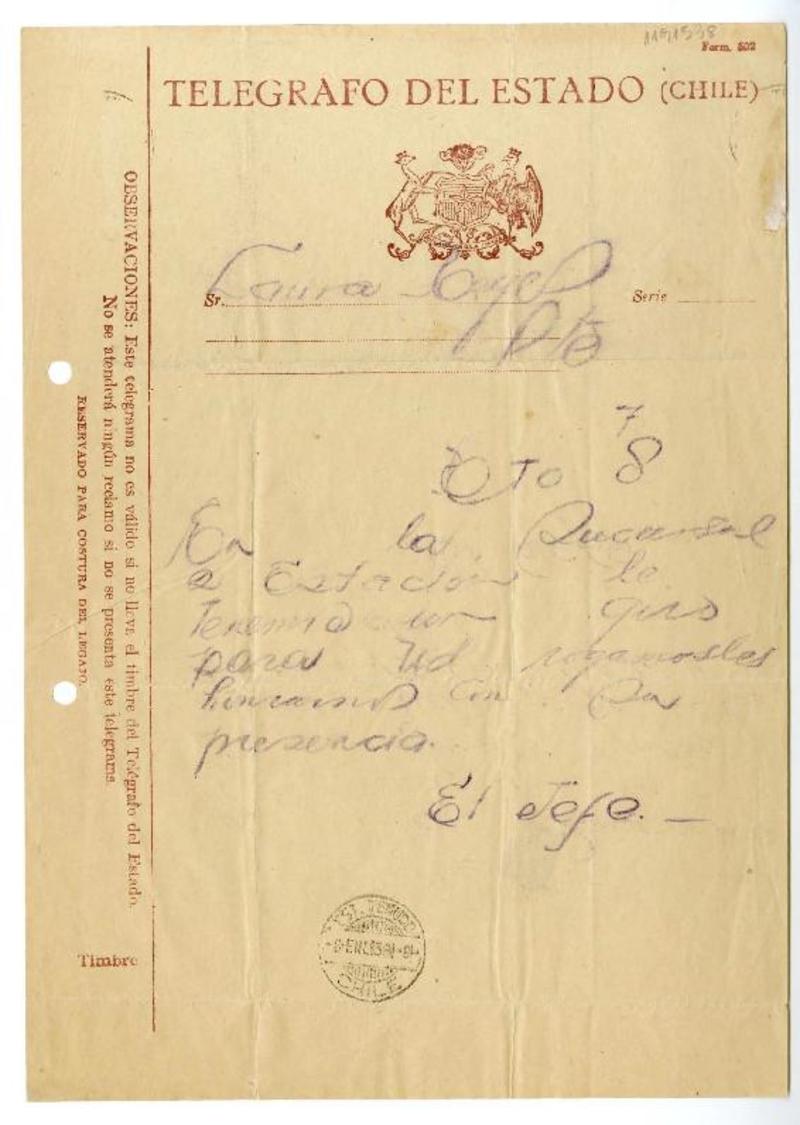 1151538
Form. 502
TELEGRAFO DEL ESTADO (CHILE)
Sr. Laura
Serie
Pte
7
Eto 8
En la Sucursal
a Estación le
tenemos un giro
para Ud rogamosles
honrarnos con su
presencia.
El Jefe. —
OBSERVACIONES: Este telegrama no es válido si no lleva el timbre del Telégrafo del Estado.
No se atenderá ningún reclamo si no se presenta este telegrama.
RESERVADO PARA COSTURA DEL LEGAJO.
Timbre
EST. TEMUCO
CHILE